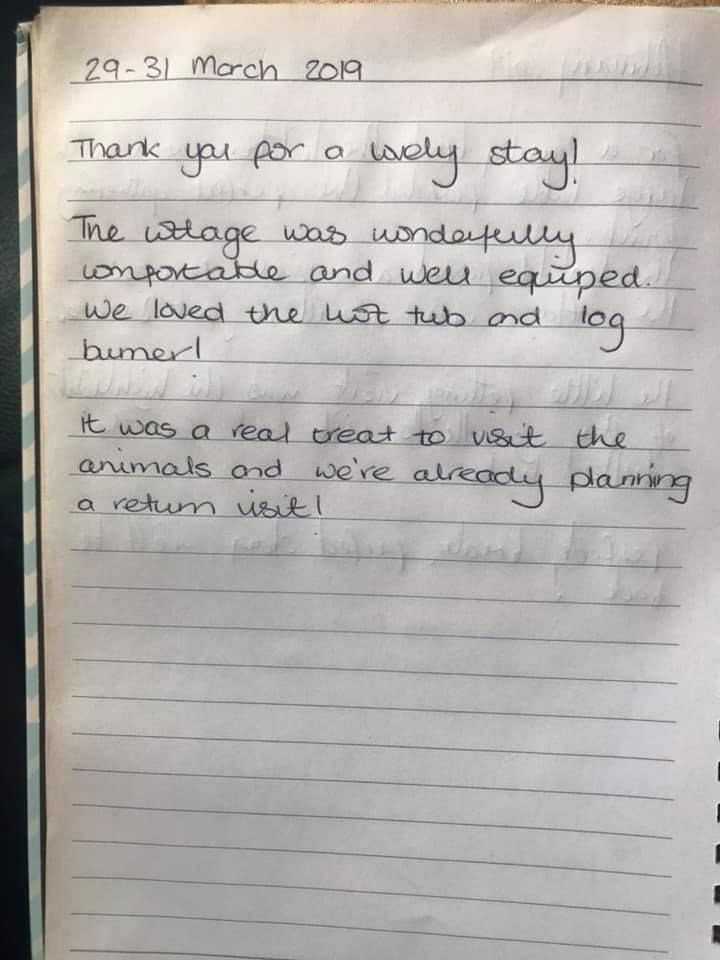 29-31 March 2019
Thank you for a lovely stay!
The cottage was wonderfully
comfortable and well equiped.
We loved the hot tub and log
burner!
It was a real treat to visit the
animals and we're already planning
a return visit!